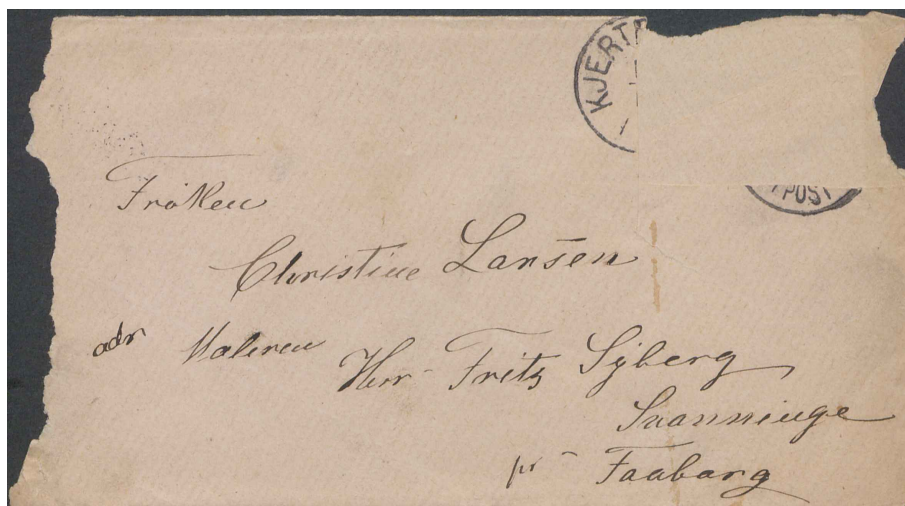 KJERT
POST
Frøken
Christine Larsen
adr Maleren
Herr Fritz Syberg
Svanninge
pr Faaborg